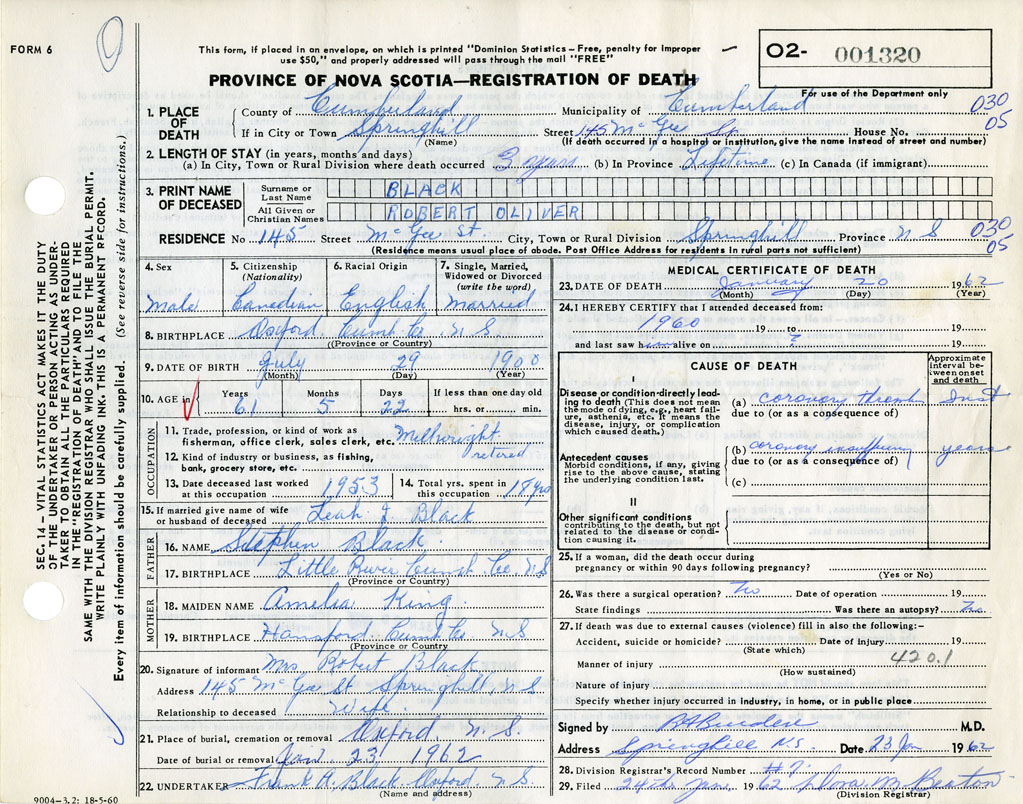 FORM 6
This form, if placed in an envelope, on which is printed "Dominion Statistics – Free, penalty for improper
use $50," and properly addressed will pass through the mail "FREE"
PROVINCE OF NOVA SCOTIA—REGISTRATION OF DEATH
O2- 001320
For use of the Department only
SEC. 14 – VITAL STATISTICS ACT MAKES IT THE DUTY
OF THE UNDERTAKER OR PERSON ACTING AS UNDER-
TAKER TO OBTAIN ALL THE PARTICULARS REQUIRED
IN THE "REGISTRATION OF DEATH" AND TO FILE THE
SAME WITH THE DIVISION REGISTRAR WHO SHALL ISSUE THE BURIAL PERMIT.
WRITE PLAINLY WITH UNFADING INK. THIS IS A PERMANENT RECORD.
Every item of information should be carefully supplied. (See reverse side for instructions.)
1. PLACE OF DEATH
County of Cumberland Municipality of Cumberland 030
If in City or Town Springhill Street 145 McGee St. House No. 05
(Name) (If death occurred in a hospital or institution, give the name instead of street and number)
2. LENGTH OF STAY (in years, months and days)
(a) In City, Town or Rural Division where death occurred 3 years (b) In Province Lifetime (c) In Canada (if immigrant)
3. PRINT NAME OF DECEASED
Surname or Last Name BLACK
All Given or Christian Names ROBERT OLIVER
RESIDENCE No 145 Street McGee St. City, Town or Rural Division Springhill Province N S 030
05
(Residence means usual place of abode. Post Office Address for residents in rural parts not sufficient)
4. Sex Male
5. Citizenship (Nationality) Canadian
6. Racial Origin English
7. Single, Married, Widowed or Divorced (write the word) Married
8. BIRTHPLACE Oxford Cumb Co N S
(Province or Country)
9. DATE OF BIRTH July 29 1900
(Month) (Day) (Year)
10. AGE in Years 61 Months 5 Days 22 If less than one day old hrs. or min.
OCCUPATION
11. Trade, profession, or kind of work as
fisherman, office clerk, sales clerk, etc. Millwright
12. Kind of industry or business, as fishing, retired
bank, grocery store, etc.
13. Date deceased last worked at this occupation 1953
14. Total yrs. spent in this occupation 18 yrs
15. If married give name of wife
or husband of deceased Leah J. Black
FATHER
16. NAME Stephen Black
17. BIRTHPLACE Little River Cumb Co. N S
(Province or Country)
MOTHER
18. MAIDEN NAME Amelia King
19. BIRTHPLACE Hansford Cumb Co N S
(Province or Country
20. Signature of informant Mrs Robert Black
Address 145 McGee St Springhill, N S
Relationship to deceased Wife
21. Place of burial, cremation or removal Oxford N. S.
Date of burial or removal Jan 23 1962
22. UNDERTAKER Frank A. Black Oxford N. S.
(Name and address)
9004–3.2: 18-5-60
MEDICAL CERTIFICATE OF DEATH
23. DATE OF DEATH January 20 1962
(Month) (Day) (Year)
24. I HEREBY CERTIFY that I attended deceased from:
1960 19 to 19
and last saw him alive on 19
CAUSE OF DEATH
Approximate interval between onset and death
I
Disease or condition directly lead-
ing to death (This does not mean
the mode of dying, e.g., heart fail-
ure, asthenia, etc. It means the
disease, injury, or complication
which caused death.)
(a) coronary thromb Inst
due to (or as a consequence of)
Antecedent causes
Morbid conditions, if any, giving
rise to the above cause, stating
the underlying condition last.
(b) coronary insufficiency years
due to (or as a consequence of)
(c)
II
Other significant conditions
contributing to the death, but not
related to the disease or condi-
tion causing it.
25. If a woman, did the death occur during
pregnancy or within 90 days following pregnancy?
(Yes or No)
26. Was there a surgical operation? No Date of operation 19
State findings Was there an autopsy? No
27. If death was due to external causes (violence) fill in also the following:–
Accident, suicide or homicide? Date of injury 19
(State which)
Manner of injury 420.1
(How sustained)
Nature of injury
Specify whether injury occurred in industry, in home, or in public place
Signed by M.D.
Address Springhill N.S. Date 23 Jan 1962
28. Division Registrar's Record Number #7
29. Filed 24th Jan, 1962 M Beaton
(Division Registrar)